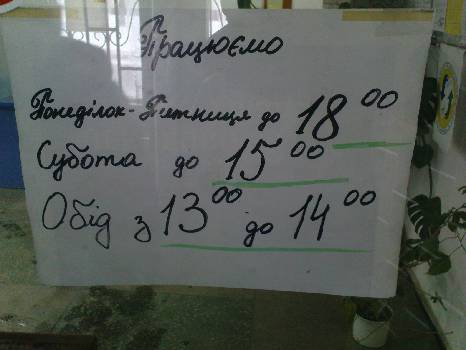 Працюємо
Понеділок - Пятниця до 18 00
Субота до 15 00
Обід з 13 00 до 14 00